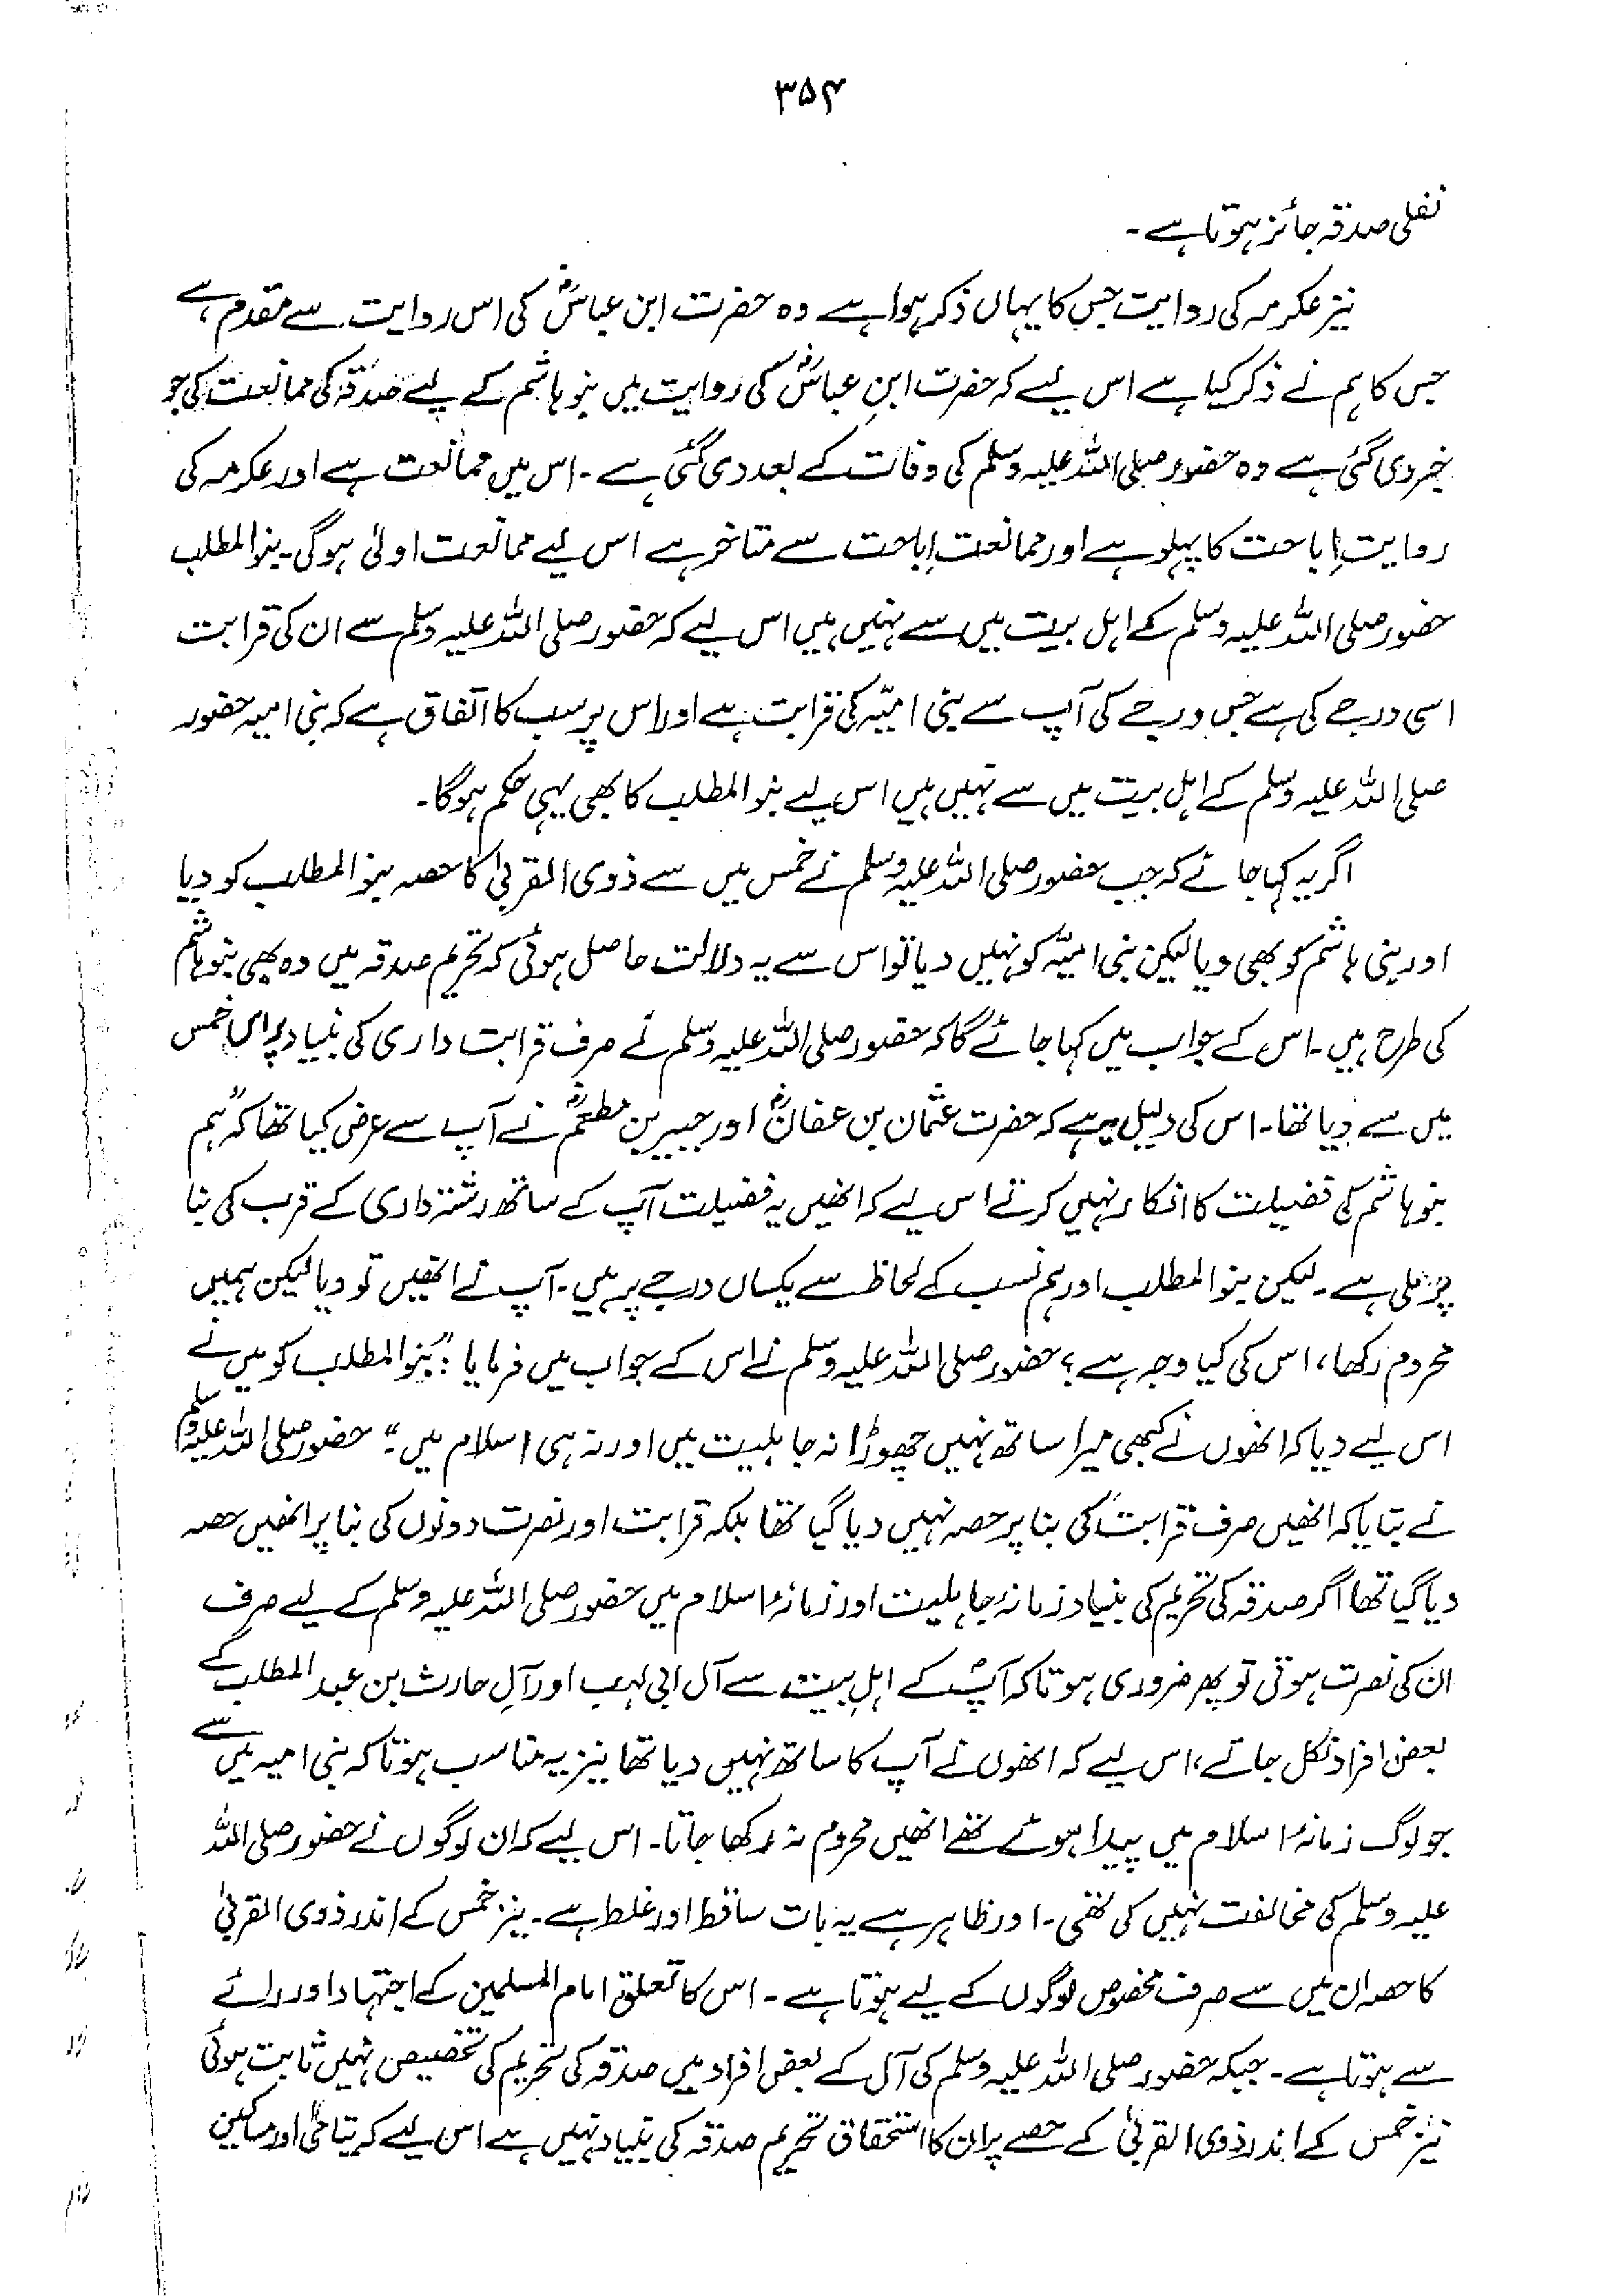 ۳۵۴
نفلی صدقہ جائز ہوتا ہے۔
نیز عکرمہ کی روایت جس کا یہاں ذکر ہوا ہے وہ حضرت ابن عباسؓ کی اس روایت سے مقدم ہے
جس کا ہم نے ذکر کیا ہے اس لیے کہ حضرت ابنِ عباسؓ کی روایت میں بنو ہاشم کے لیے صدقہ کی ممانعت کی جو
خبر دی گئی ہے وہ حضور صلی اللہ علیہ وسلم کی وفات کے بعد دی گئی ہے۔ اس میں ممانعت ہے اور عکرمہ کی
روایت اِباحت کا پہلو ہے اور ممانعت اِباحت سے متاخر ہے اس لیے ممانعت اولیٰ ہوگی۔ بنو المطلب
حضور صلی اللہ علیہ وسلم کے اہل بیت میں سے نہیں ہیں اس لیے کہ حضور صلی اللہ علیہ وسلم سے ان کی قرابت
اسی درجے کی ہے جس درجے کی آپ سے بنی امیّہ کی قرابت ہے اور اس پر سب کا اتفاق ہے کہ بنی امیہ حضور
صلی اللہ علیہ وسلم کے اہل بیت میں سے نہیں ہیں اس لیے بنو المطلب کا بھی یہی حکم ہوگا۔
اگر یہ کہا جائے کہ جب حضور صلی اللہ علیہ وسلم نے خمس میں سے ذوی القربیٰ کا حصہ بنو المطلب کو دیا
اور بنی ہاشم کو بھی دیا لیکن بنی امیّہ کو نہیں دیا تو اس سے یہ دلالت حاصل ہوئی کہ تحریم صدقہ میں وہ بھی بنو ہاشم
کی طرح ہیں۔ اس کے جواب میں کہا جائے گا کہ حضور صلی اللہ علیہ وسلم نے صرف قرابت داری کی بنیاد پر اس خمس
میں سے دیا تھا۔ اس کی دلیل یہ ہے کہ حضرت عثمان بن عفانؓ اور جبیر بن مطعمؓ نے آپ سے عرض کیا تھا کہ "ہم
بنو ہاشم کی فضیلت کا انکار نہیں کرتے اس لیے کہ انھیں یہ فضیلت آپ کے ساتھ رشتہ داری کے قرب کی بنا
پر ملی ہے۔ لیکن بنو المطلب اور ہم نسب کے لحاظ سے یکساں درجے پر ہیں۔ آپ نے انھیں تو دیا لیکن ہمیں
محروم رکھا، اس کی کیا وجہ ہے؟ حضور صلی اللہ علیہ وسلم نے اس کے جواب میں فرمایا: "بنو المطلب کو میں نے
اس لیے دیا کہ انھوں نے کبھی میرا ساتھ نہیں چھوڑا نہ جاہلیت میں اور نہ ہی اسلام میں۔" حضور صلی اللہ علیہ وسلم
نے بتایا کہ انھیں صرف قرابت کی بنا پر حصہ نہیں دیا گیا تھا بلکہ قرابت اور نصرت دونوں کی بنا پر انھیں حصہ
دیا گیا تھا اگر صدقہ کی تحریم کی بنیاد زمانۂ جاہلیت اور زمانۂ اسلام میں حضور صلی اللہ علیہ وسلم کے لیے صرف
ان کی نصرت ہوتی تو پھر ضروری ہوتا کہ آپؐ کے اہلِ بیت سے آل ابی لہب اور آلِ حارث بن عبد المطلب کے
بعض افراد نکل جاتے، اس لیے کہ انھوں نے آپ کا ساتھ نہیں دیا تھا نیز یہ مناسب ہوتا کہ بنی امیہ میں سے
جو لوگ زمانۂ اسلام میں پیدا ہوئے تھے انھیں محروم نہ رکھا جاتا۔ اس لیے کہ ان لوگوں نے حضور صلی اللہ
علیہ وسلم کی مخالفت نہیں کی تھی۔ اور ظاہر ہے یہ بات ساقط اور غلط ہے۔ نیز خمس کے اندر ذوی القربیٰ
کا حصہ ان میں سے صرف مخصوص لوگوں کے لیے ہوتا ہے۔ اس کا تعلق امام المسلمین کے اجتہاد اور رائے
سے ہوتا ہے۔ جبکہ حضور صلی اللہ علیہ وسلم کی آل کے بعض افراد میں صدقہ کی تحریم کی تخصیص نہیں ثابت ہوئی
نیز خمس کے اندر ذوی القربیٰ کے حصے پر ان کا استحقاق تحریم صدقہ کی بنیاد نہیں ہے اس لیے کہ یتامیٰ اور مساکین